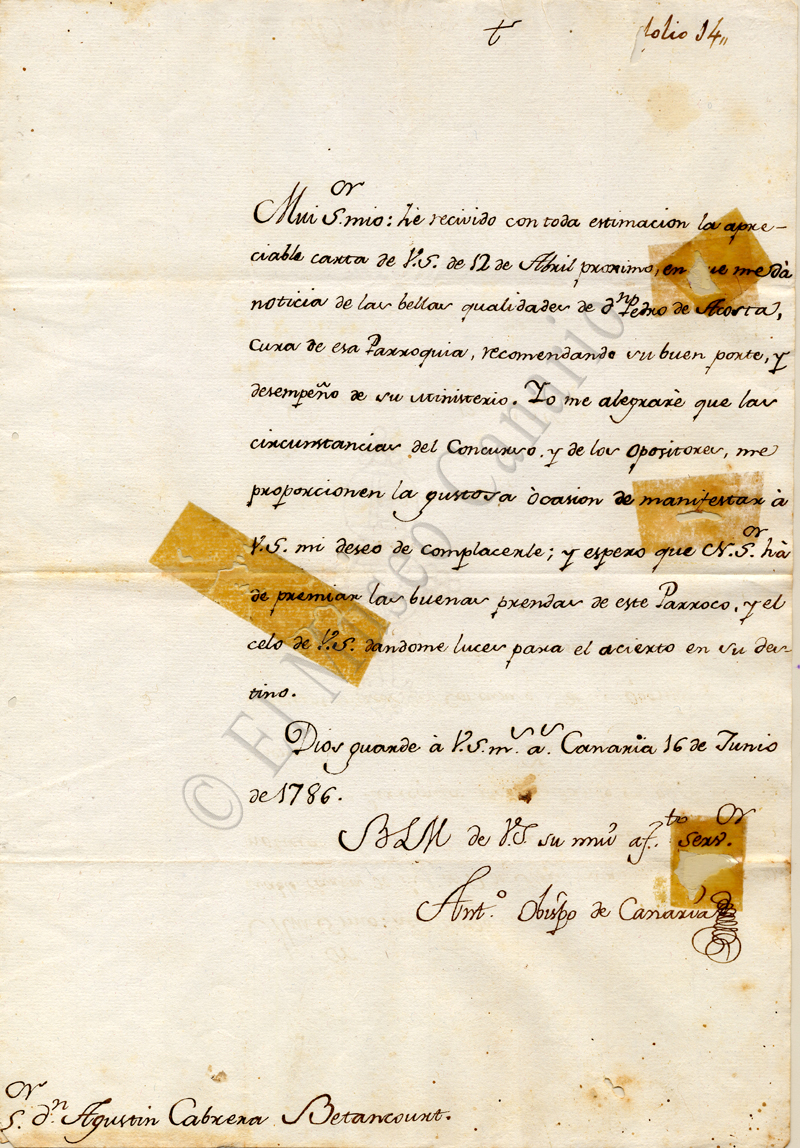 t
folio 14,,
Mui S.or mio: hè recivido con toda estimacion la apre-
ciable carta de V.S. de 12 de Abril proximo, en que me dà
noticia de las bellas qualidades de d.n Pedro de Acosta,
Cura de esa Parroquia, recomendando su buen porte, y
desempeño de su Ministerio. Yo me alegrarè que las
circunstancias del Concurso, y de los Opositores, me
proporcionen la gustosa òcasion de manifestar à
V.S. mi deseo de complacerle; y espero que N.S.or hà
de premiar las buenas prendas de este Parroco, y el
celo de V.S. dandome luces para el acierto en su des-
tino.
Dios guarde à V.S. m.s a.s Canaria 16 de Junio
de 1786.
BLM de V.S. su mui af.to Serv.or
Ant.o Obispo de Canaria
S.or d.n Agustin Cabrera Betancourt.
© El Museo Canario